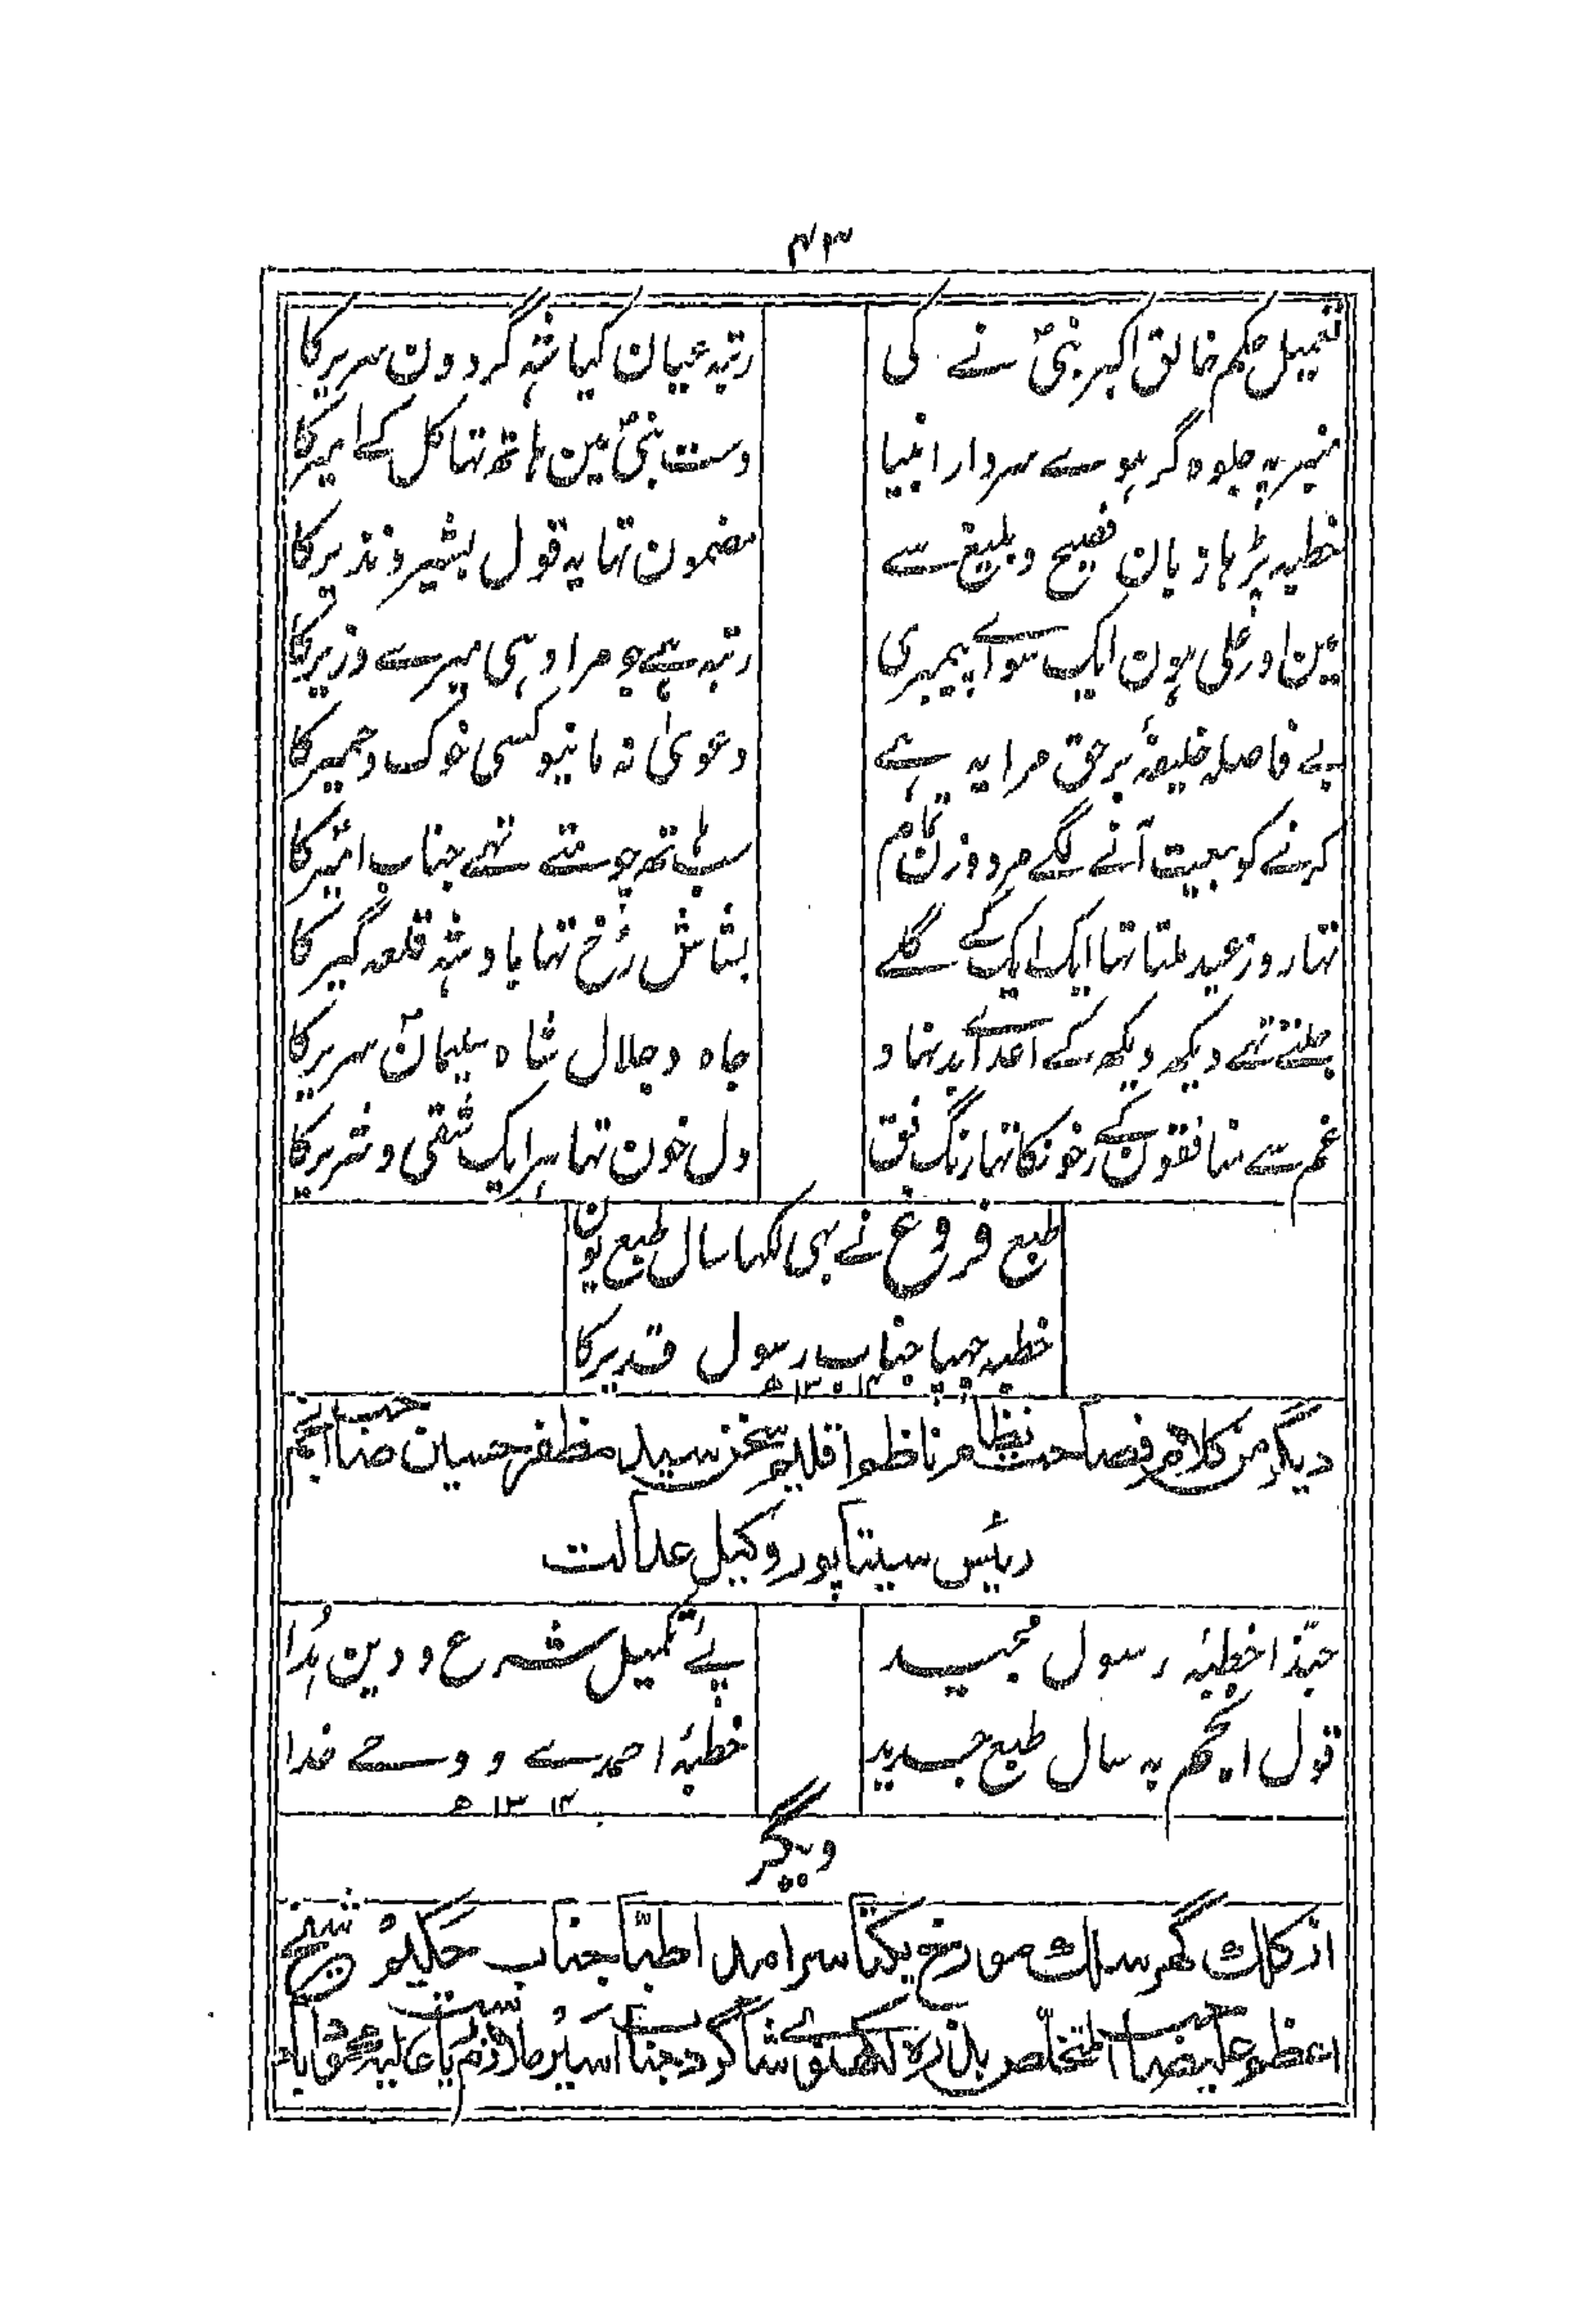 ۴۳
تعمیل حکم خالق اکبر نبیؐ نے کی رتبہ عیان کیا شہِ گردون سریر کا
منبر پہ جلوہ گر ہوے سردار انبیا دست نبیؐ مین ہاتھ تہا کل کے امیر کا
خطبہ پڑہا زبان فصیح و بلیغ سے مضمون تہا یہ قول بشیر و نذیر کا
مین اور علی ہون ایک سواے پیمبری رتبہ ہے جو مرا وہی میرے وزیر کا
بے فاصلہ خلیفۂ برحق مرا یہ ہے دعویٰ نہ مانیو کسی خوک و حمیر کا
کرنے کو بیعت آنے لگے مرد و زن تمام سب ہاتھ چومتے تہے جناب امیرؑ کا
تہا روز عید ملتا تہا ایک ایک کے گلے بشاش رُخ تہا یاد شہِ قلعہ گیر کا
جلتے تہے دیکھ دیکھ کے اعداے بدنہاد جاہ و جلال شاہ سلیمان سریر کا
غم سے منافقون کے رخونکا تہا رنگ فق دل خون تہا ہر ایک شقی و شریر کا
طبع فروغ نے بہی لکہا سال طبع یون
خطبہ چہپا جناب رسول قدیر کا
۱۳۰۱۴ ھ
دیگر من کلام فصاحت نظام ناظم اقلیم سخن سید مظفر حسین صاحب انجم
رئیس سیتاپور وکیل عدالت
حبّذا خطبۂ رسول مجید پۓ تکمیل شرع و دین ہُدا
قول انجم پہ سال طبع جدید خطبۂ احمدے و وحے خدا
۱۳۱۴ ھ
دیگر
از کلک گہر سلک مورخ یکتا سرامد اطبّا جناب حکیم شیخ
اعظم علیصاحب المتخلص بازرہ لکھنوے شاگرد جناب اسیر ملازم ریاست عالیہ محموداباد